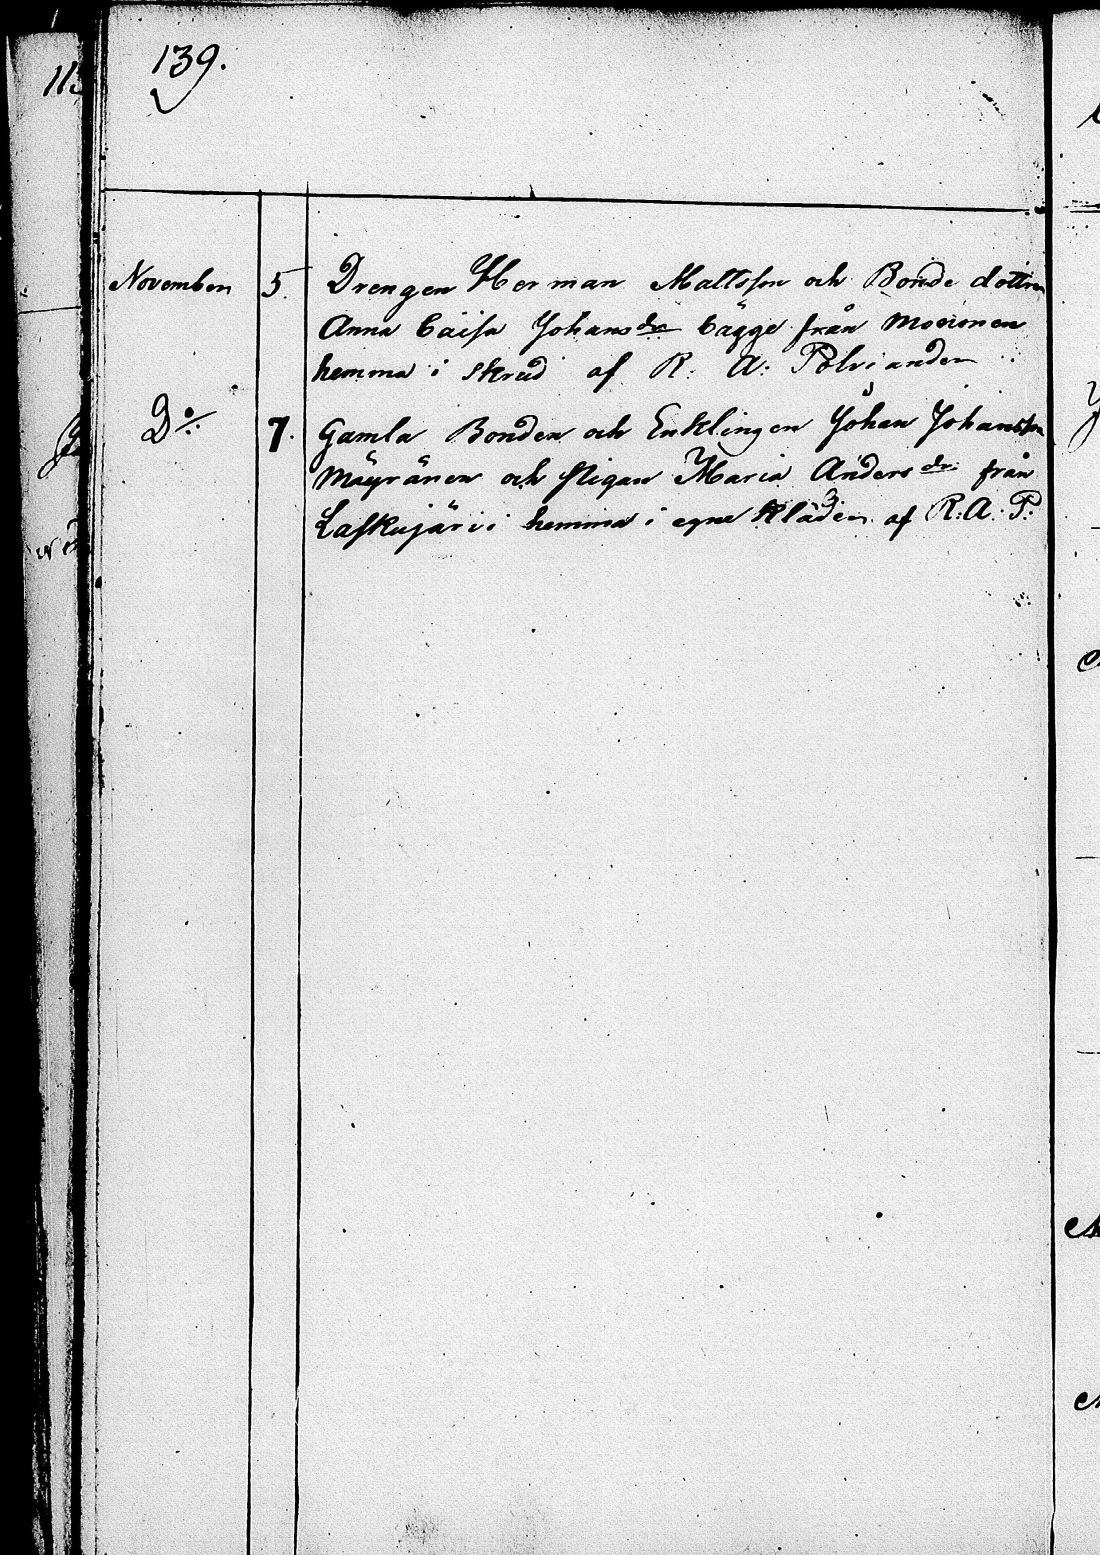 139.
November 5. Drengen Herman Mattsson och Bonde dottren
Anna Caisa Johans dr bägge från
hemma i skrud af R: A: Polviander
Do 7. Gamla Bonden och Enklingen Johan Johansson
Mäyränen och Pigan Maria Anders dr från
Laskujärvi hemma i egne kläder af R: A: P: